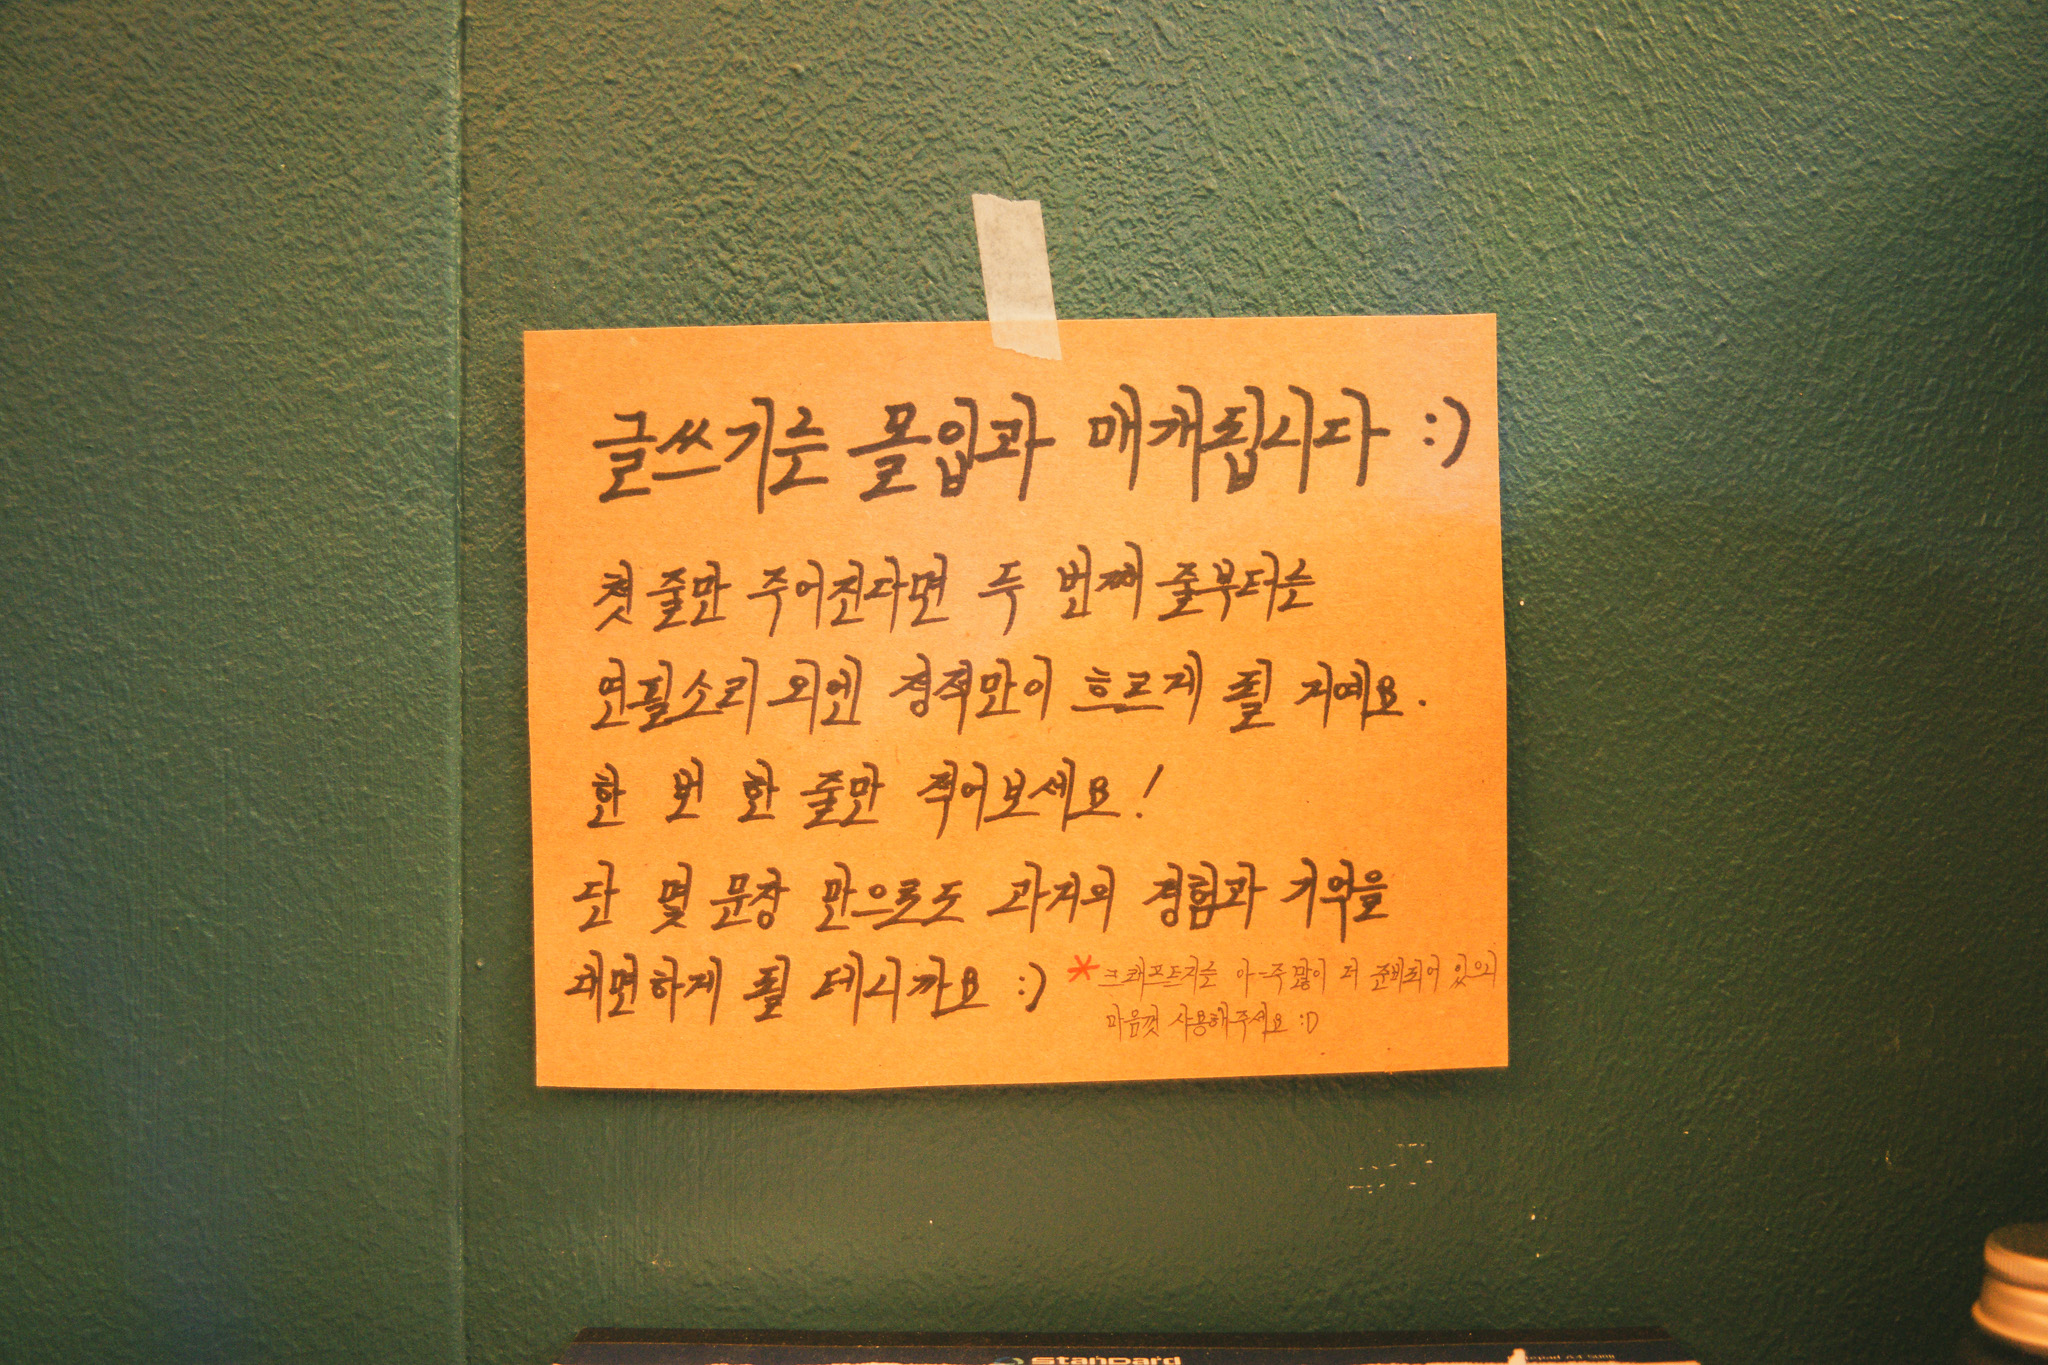 글쓰기는 몰입과 매개됩니다 :)
첫 줄만 주어진다면 두 번째 줄부터는
연필소리 외엔 정적만이 흐르게 될 거예요.
한 번 한 줄만 적어보세요!
단 몇 문장 만으로도 과거의 경험과 기억을
대면하게 될 테니까요 :)
*크래프트지는 아-주 많이 더 준비되어 있으니
마음껏 사용해주세요 :D
standard